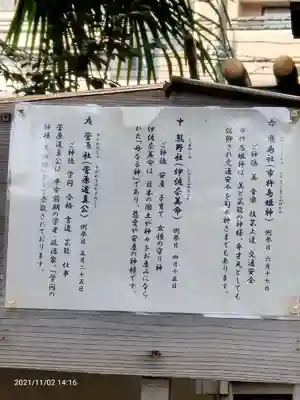 右 厳島社(市杵島姫神) 例祭日 六月十七日
ご神徳 美 音楽 技芸上達 交通安全
市杵島姫神は、美と芸能の神様、弁才天としても
信仰され交通安全を司る神さまでもあります。
中 熊野社(伊佐奈美命) 例祭日 四月十五日
ご神徳 安産 子育て 女性の守り神
伊佐奈美命は、日本の国土や神々をお産みになら
れた「母なる神」であり、慈愛や安産の神様です。
左 菅原社(菅原道真公) 例祭日 五月二十五日
ご神徳 学問 合格 書道 芸能 仕事
菅原道真公は、平安前期の学者・政治家、「学問の
神様・天神さま」として崇敬されております。
2021/11/02 14:16